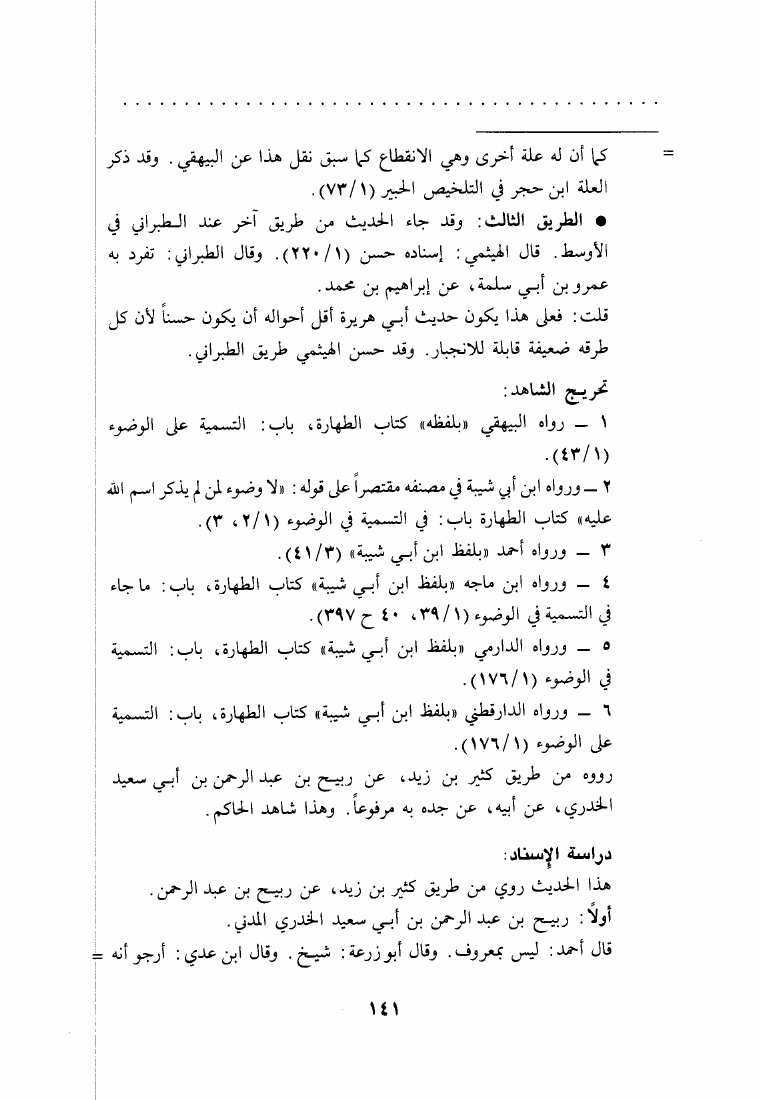 . . . . . . . . . . . . . . . . . . . . . . . . . . . . . . . . . . . . . . . . . . . .
= كما أن له علة أخرى وهي الانقطاع كما سبق نقل هذا عن البيهقي. وقد ذكر
العلة ابن حجر في التلخيص الحبير (٧٣/١).
● الطريق الثالث: وقد جاء الحديث من طريق آخر عند الطبراني في
الأوسط. قال الهيثمي: إسناده حسن (٢٢٠/١). وقال الطبراني: تفرد به
عمرو بن أبي سلمة، عن إبراهيم بن محمد.
قلت: فعلى هذا يكون حديث أبي هريرة أقل أحواله أن يكون حسناً لأن كل
طرقه ضعيفة قابلة للانجبار. وقد حسن الهيثمي طريق الطبراني.
تخريج الشاهد:
١ – رواه البيهقي «بلفظه» كتاب الطهارة، باب: التسمية على الوضوء
(٤٣/١).
٢ – ورواه ابن أبي شيبة في مصنفه مقتصراً على قوله: «لا وضوء لمن لم يذكر اسم الله
عليه» كتاب الطهارة باب: في التسمية في الوضوء (٢/١، ٣).
٣ – ورواه أحمد «بلفظ ابن أبي شيبة» (٤١/٣).
٤ – ورواه ابن ماجه «بلفظ ابن أبي شيبة» كتاب الطهارة، باب: ما جاء
في التسمية في الوضوء (٣٩/١، ٤٠ ح ٣٩٧).
٥ – ورواه الدارمي «بلفظ ابن أبي شيبة» كتاب الطهارة، باب: التسمية
في الوضوء (١٧٦/١).
٦ – ورواه الدارقطني «بلفظ ابن أبي شيبة» كتاب الطهارة، باب: التسمية
على الوضوء (١٧٦/١).
رووه من طريق كثير بن زيد، عن ربيح بن عبد الرحمن بن أبي سعيد
الخدري، عن أبيه، عن جده به مرفوعاً. وهذا شاهد الحاكم.
دراسة الإسناد:
هذا الحديث روي من طريق كثير بن زيد، عن ربيح بن عبد الرحمن.
أولاً: ربيح بن عبد الرحمن بن أبي سعيد الخدري المدني.
قال أحمد: ليس بمعروف. وقال أبو زرعة: شيخ. وقال ابن عدي: أرجو أنه =
١٤١